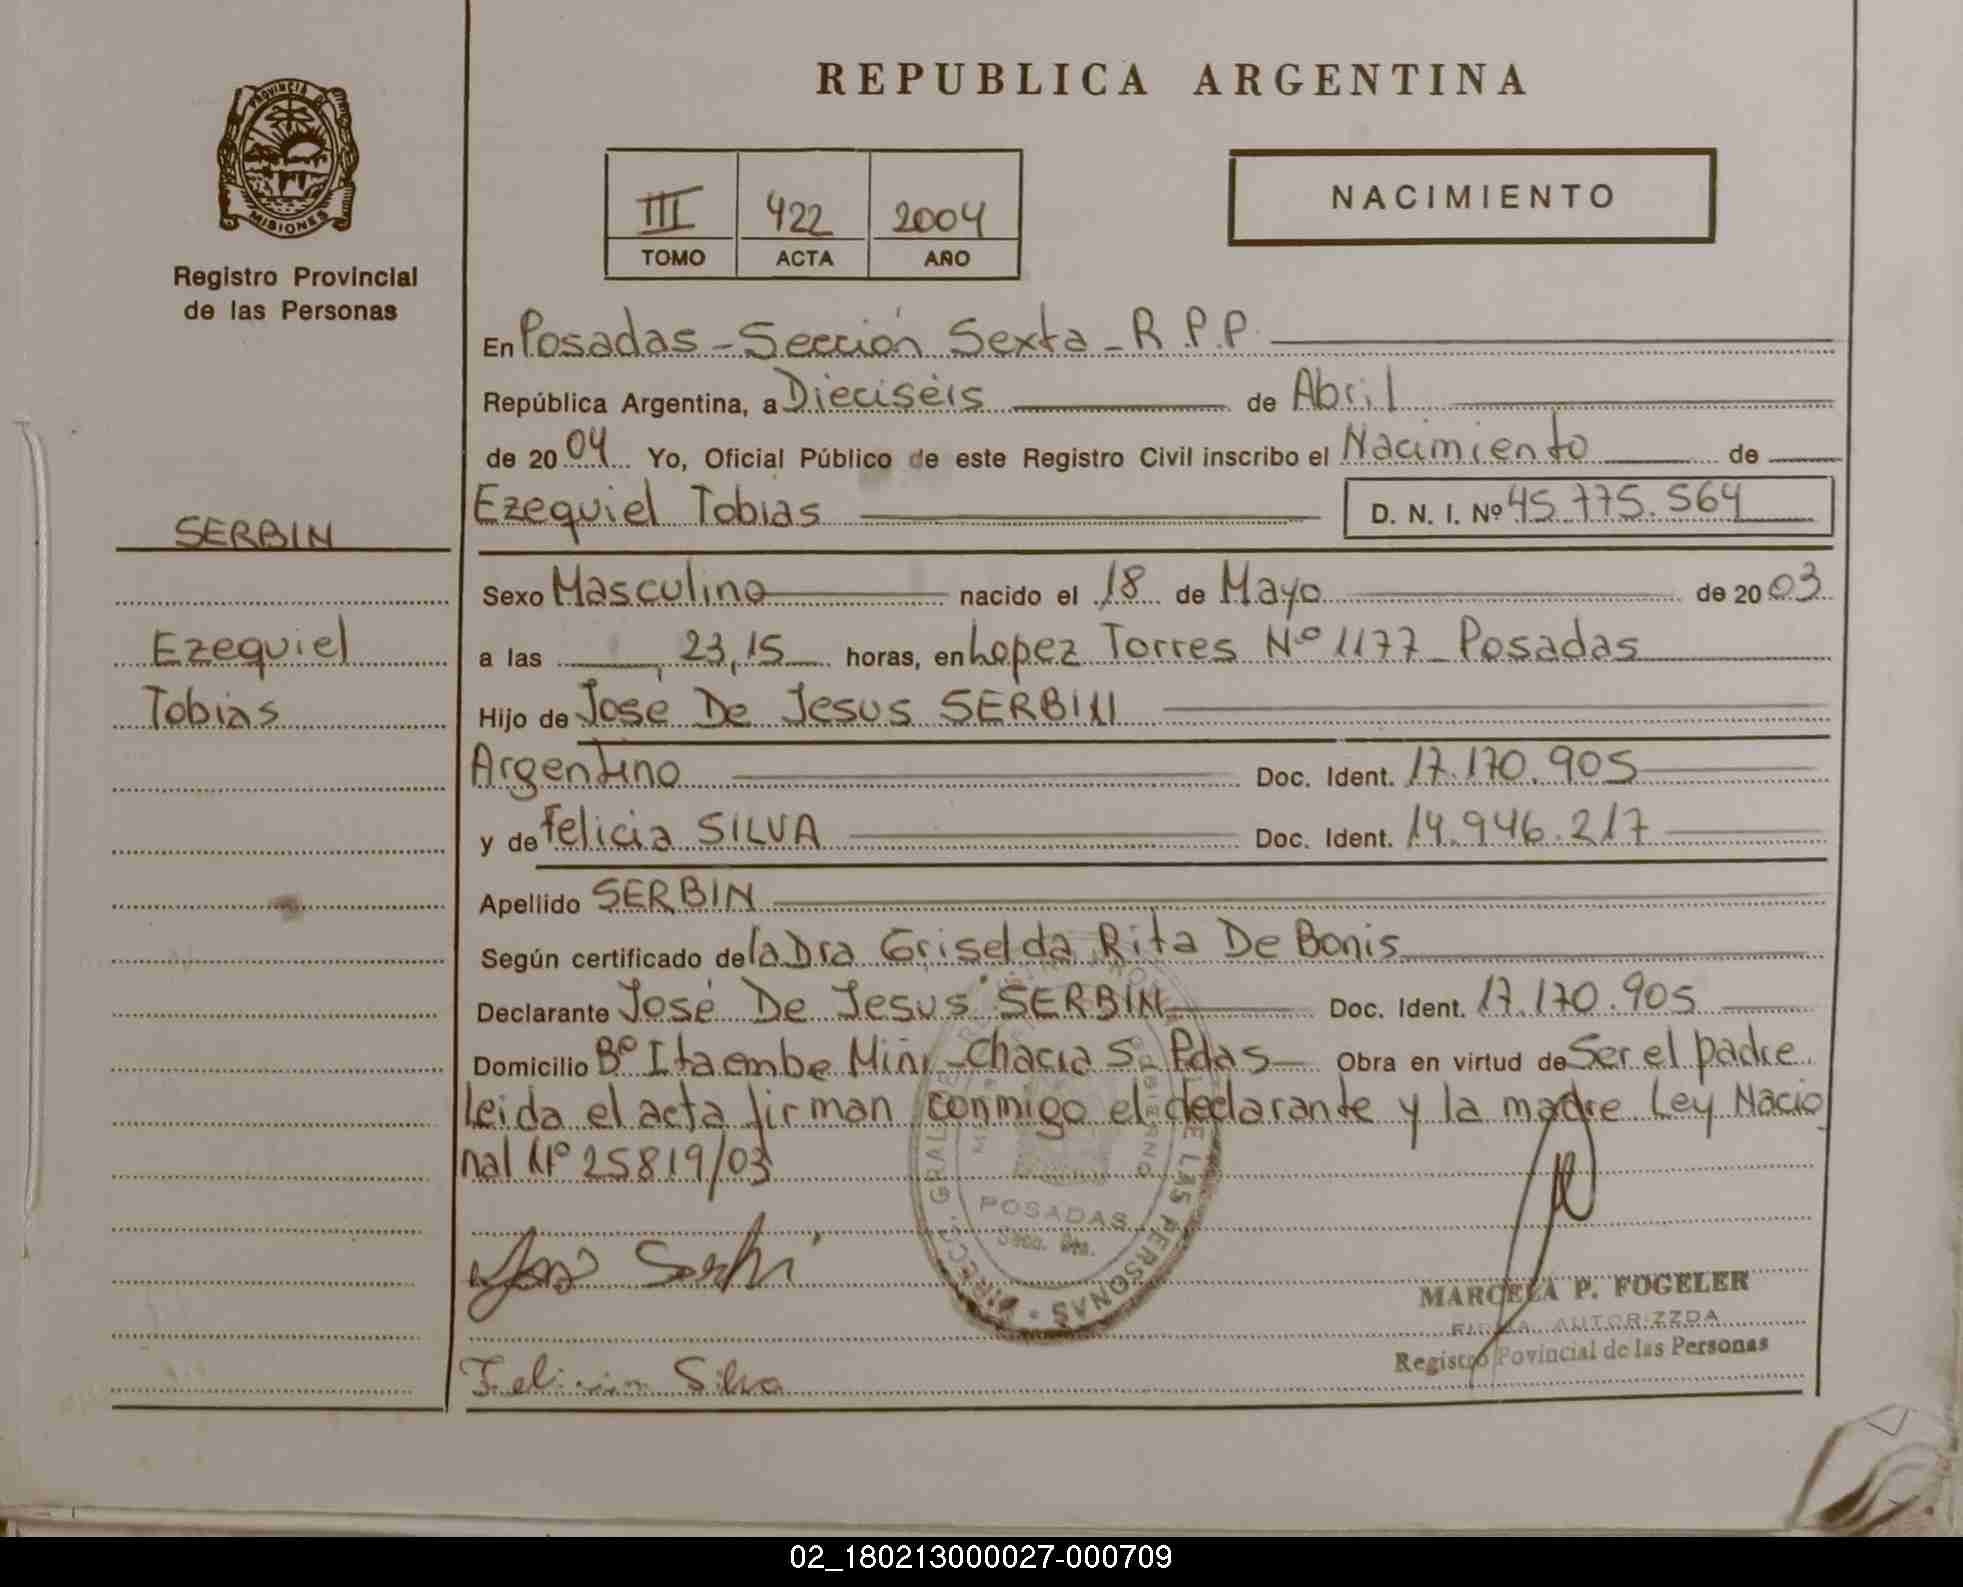 REPUBLICA ARGENTINA
PROVINCIA DE
MISIONES
Registro Provincial
de las Personas
III 422 2004
TOMO ACTA AÑO
NACIMIENTO
En Posadas - Sección Sexta - R.P.P.
República Argentina, a Dieciséis de Abril
de 2004 Yo, Oficial Público de este Registro Civil inscribo el Nacimiento de
Ezequiel Tobias D. N. I. Nº 45.775.564
SERBIN
Ezequiel
Tobias
Sexo Masculino nacido el 18 de Mayo de 2003
a las 23,15 horas, en Lopez Torres Nº 1177 Posadas
Hijo de José De Jesus SERBIN
Argentino Doc. Ident. 17.170.905
y de Felicia SILVA Doc. Ident. 14.946.217
Apellido SERBIN
Según certificado de la Dra Griselda Rita De Bonis
Declarante José De Jesus SERBIN Doc. Ident. 17.170.905
Domicilio Bº Itaembe Miñi - Chacra 5 - Pdas Obra en virtud de Ser el padre
Leida el acta firman conmigo el declarante y la madre Ley Nacio
nal Nº 25819/03
DE LAS PERSONAS
POSADAS
José Serbin
Felicia Silva
MARCELA P. FOGELER
FIRMA AUTORIZZDA
Registro Povincial de las Personas
02_180213000027-000709